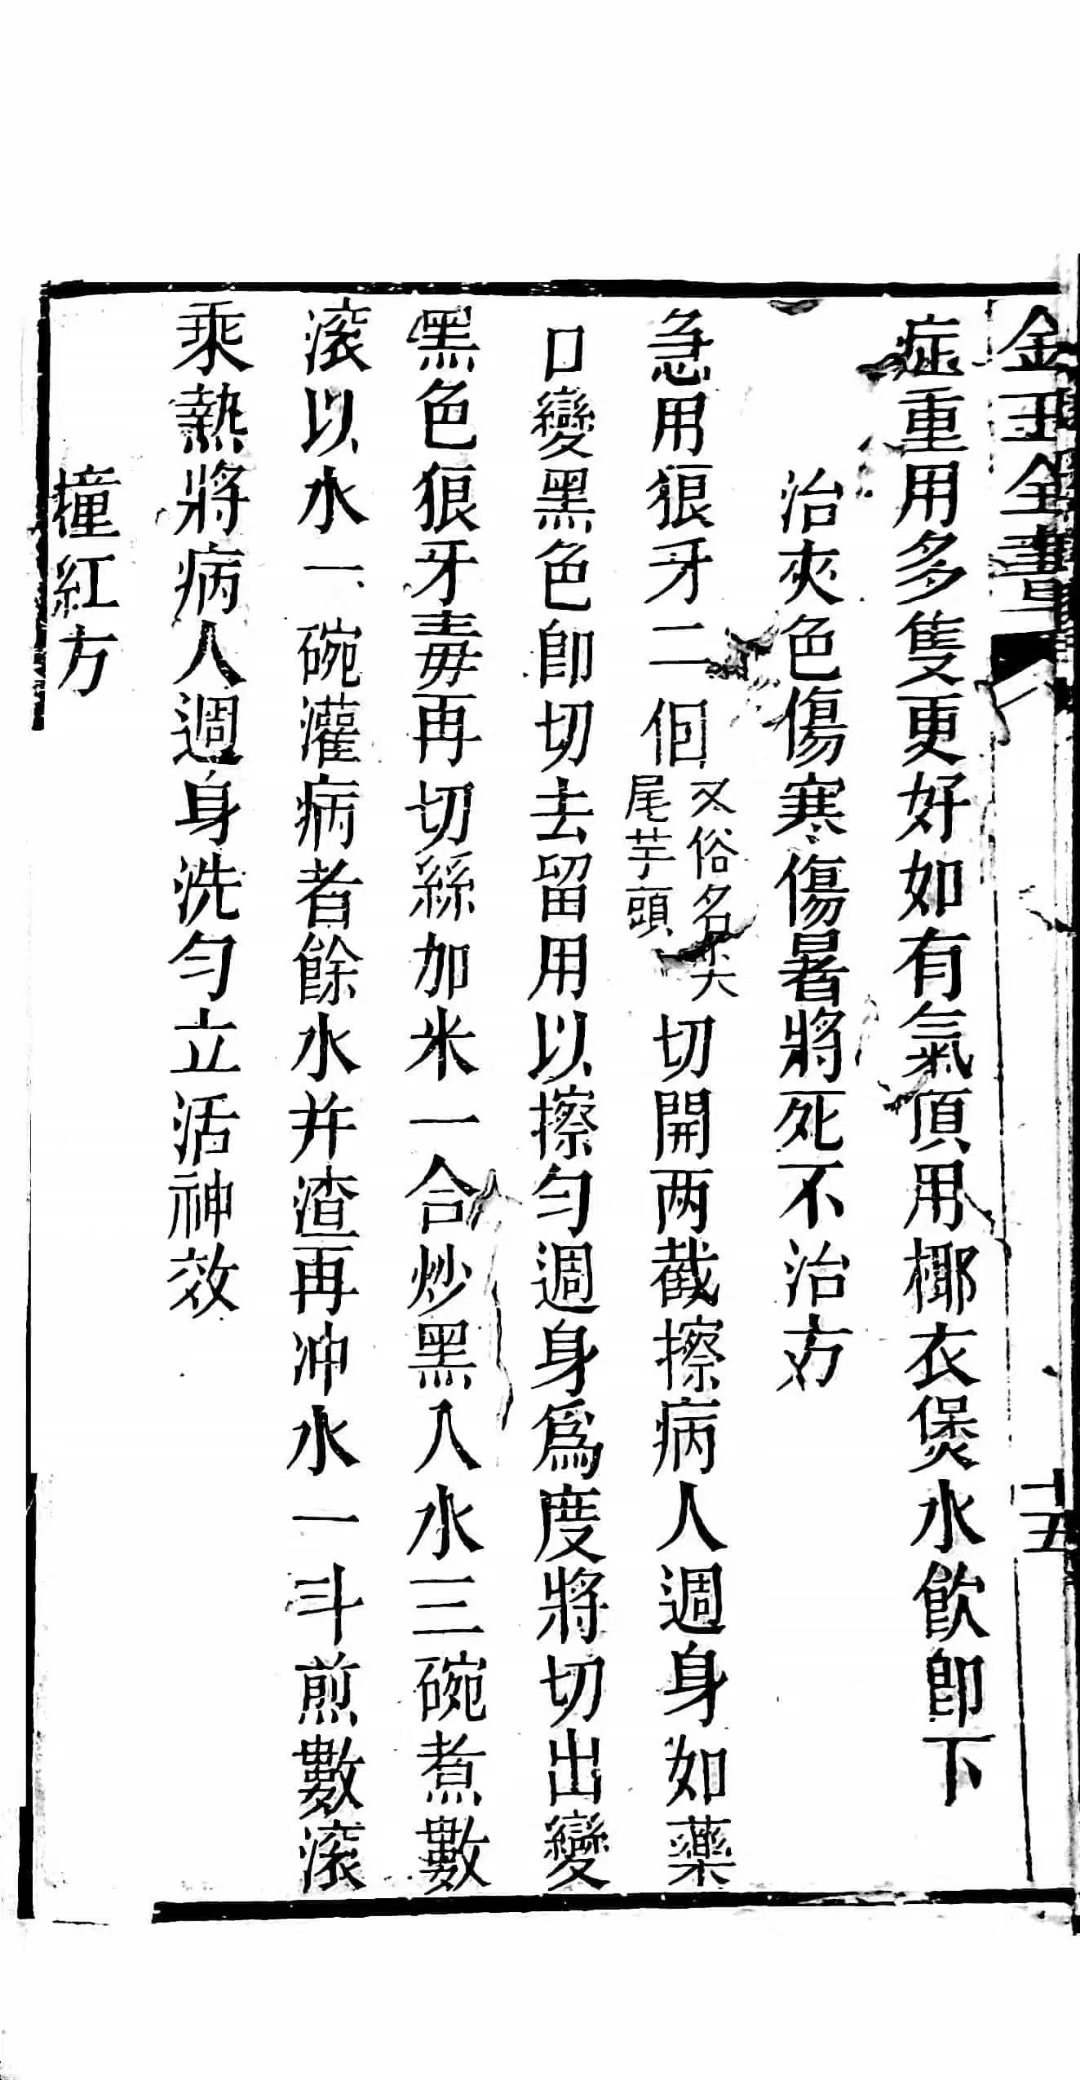 金玉全書
十五
症重用多隻更好如有氣頂用椰衣煲水飲卽下
治夾色傷寒傷暑將死不治方
急用狼牙二個又俗名尖尾芋頭切開两截擦病人週身如藥
口變黑色卽切去留用以擦勻週身爲度將切出變
黑色狼牙毒再切絲加米一合炒黑入水三碗煮數
滚以水一碗灌病者餘水并渣再冲水一斗煎數滚
乘熱將病人週身洗勻立活神效
撞紅方